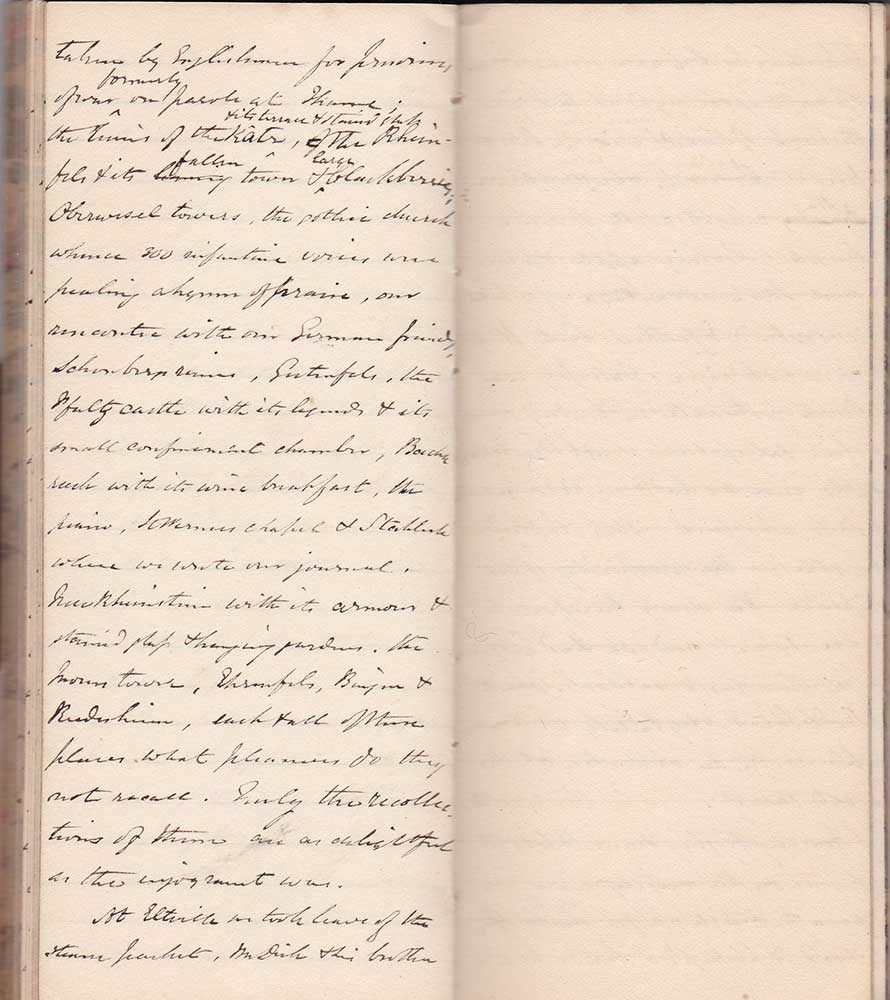 taken by Englishmen for prisoners
formerly
of war on parole at Thame;
& its terrace & stained glass
the ruins of the Katz, of the Rhein-
fallen large
fels & its town & blackberries;
Oberwesel towers, the gothic church
whence 300 infantine voices were
pealing a hymn of praise, our
rencontre with our German friends,
Schonberg ruins, Gutenfels, the
Pfalz castle with its legends & its
small confinement chamber, Bacha-
rach with its wine breakfast, the
piano, St Werners chapel & Stahleck
where we wrote our journal.
New Rheinstein with its armour &
stained glass & hanging gardens. the
Mouse tower, Ehrenfels, Bingen &
Rudesheim, each & all of these
places what pleasures do they
not recall. Truly the recollec-
tions of them are as delightful
as the enjoyment was.
At Eltville we took leave of the
steam packet, Mr Dick & his brother